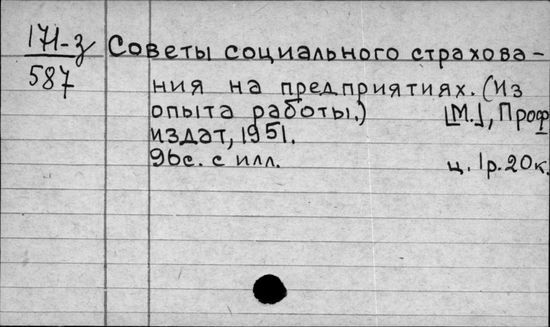 171-3
587
Советы социального страхова-
ния на предприятиях. (Из
опыта работы.) [М.], Проф
издат, 1951.
96с. с илл. ц. 1р. 20к.